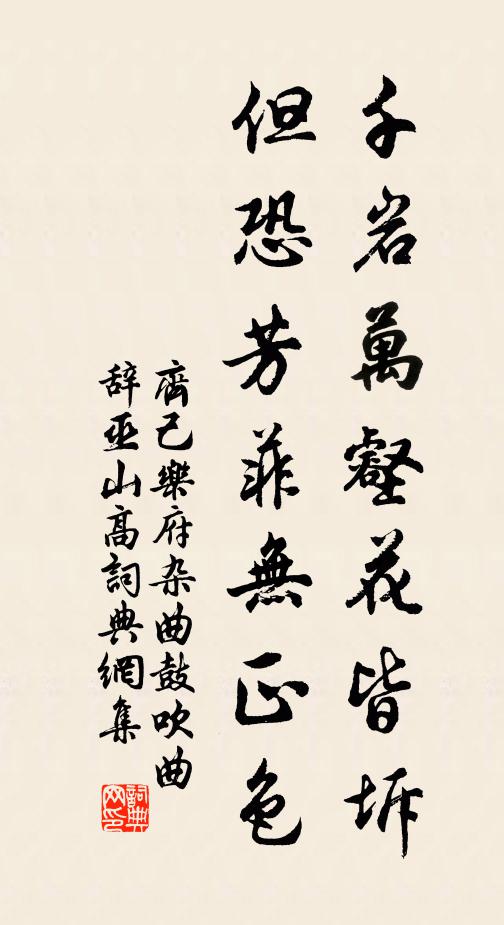 千岩萬壑花皆坼
但恐芳菲無正色
齊己樂府杂曲鼓吹曲
辞巫山高詞典網集
詞典
网印